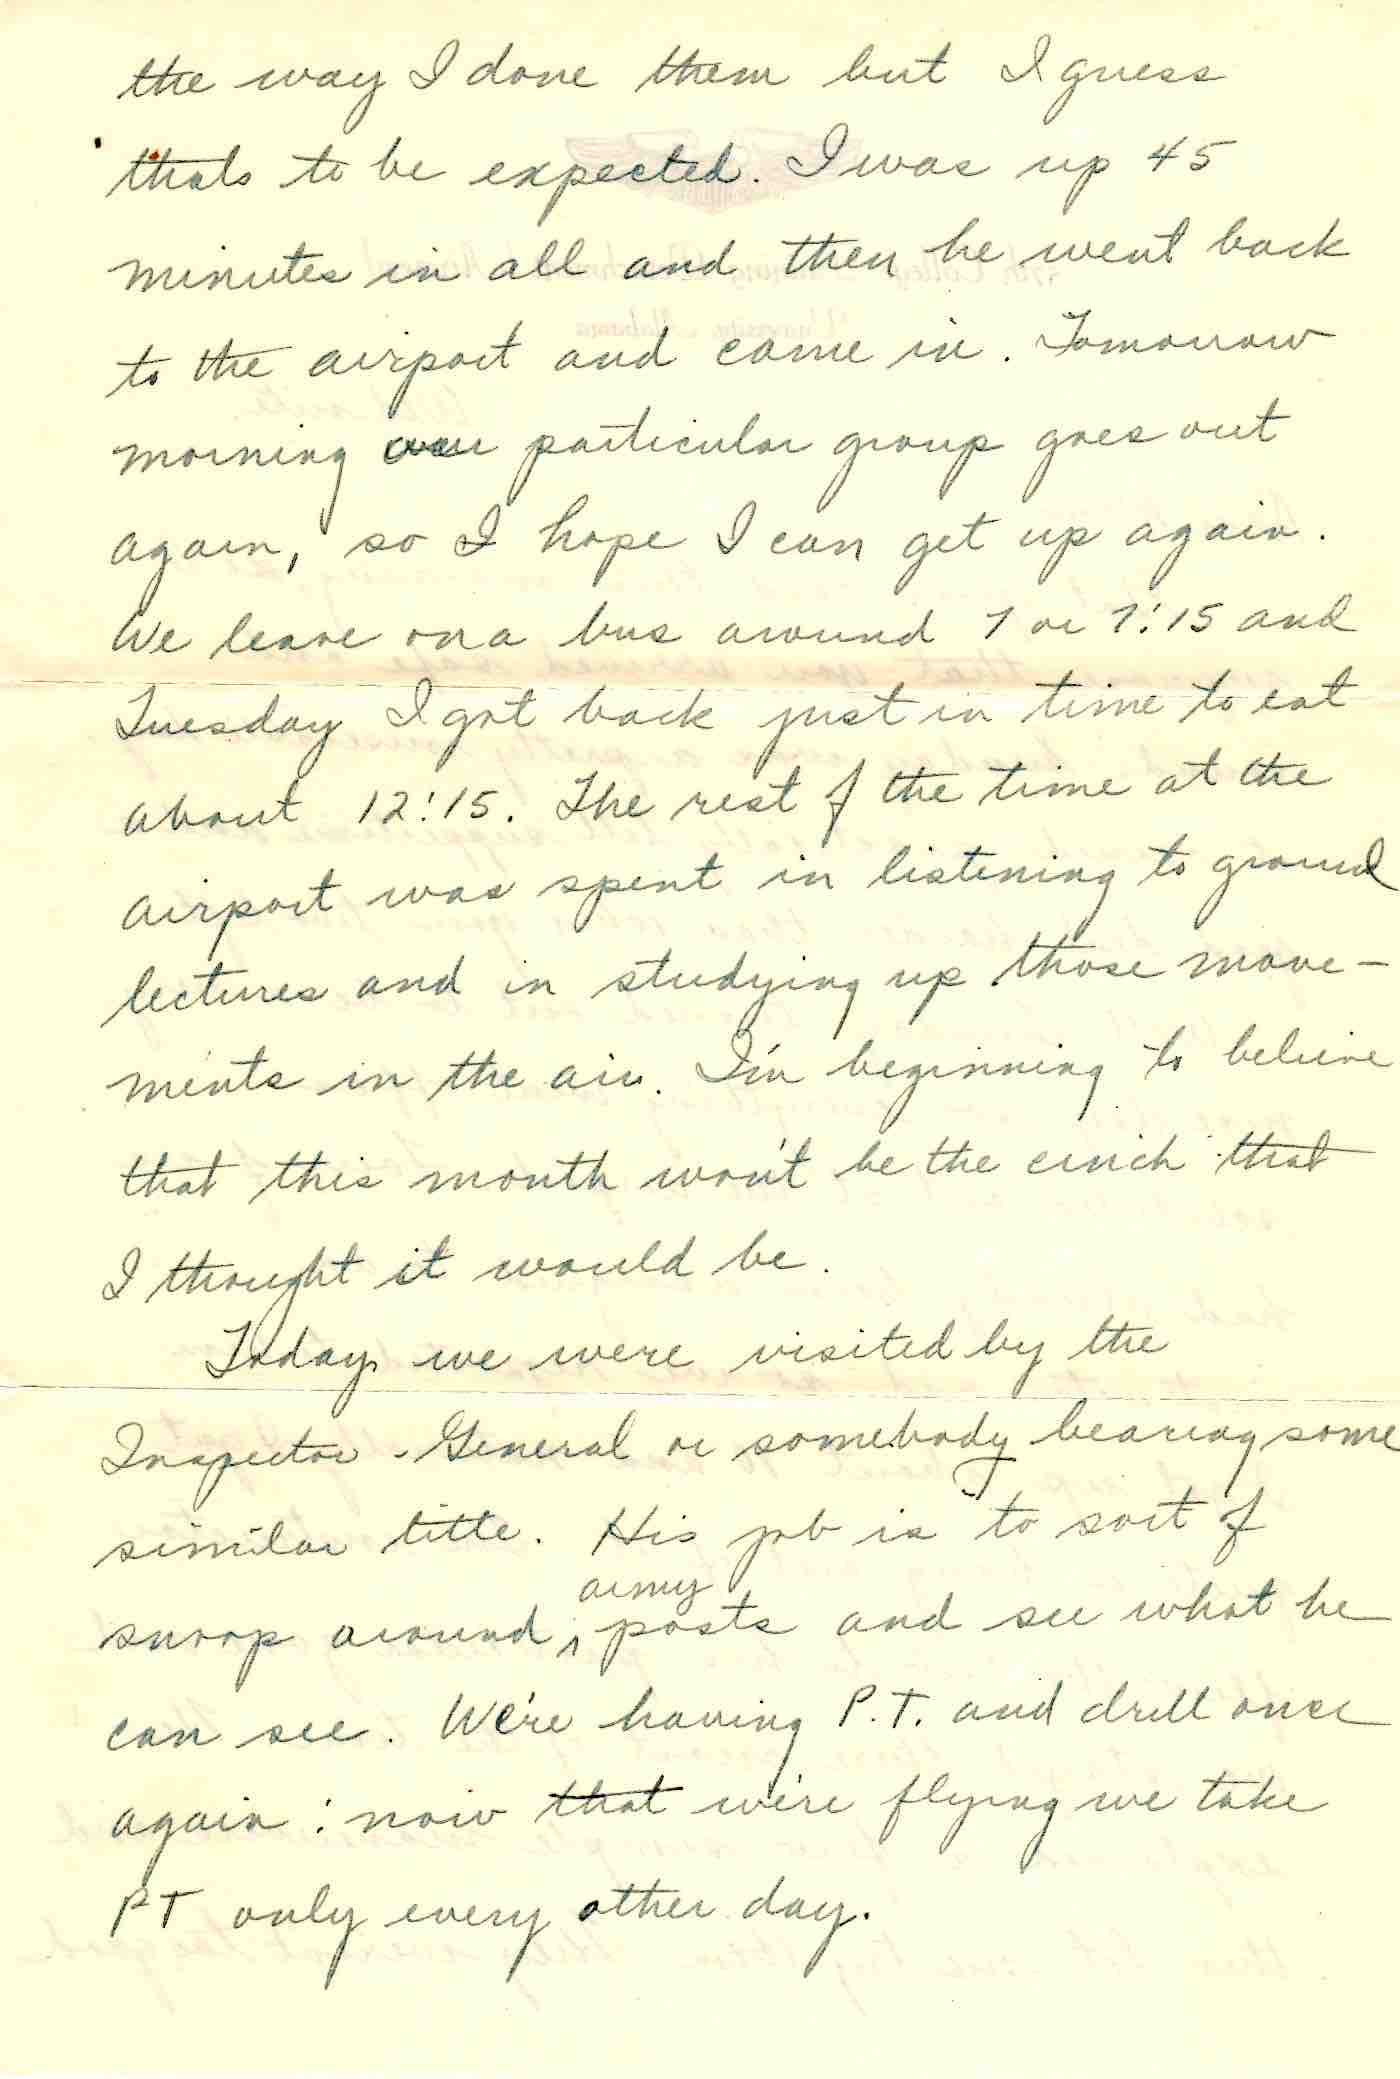 the way I done them but I guess
thats to be expected. I was up 45
minutes in all and then he went back
to the airport and came in. Tomorrow
morning our particular group goes out
again, so I hope I can get up again.
We leave on a bus around 7 or 7:15 and
Tuesday I got back just in time to eat
about 12:15. The rest of the time at the
airport was spent in listening to ground
lectures and in studying up those move-
ments in the air. I'm beginning to believe
that this month won't be the cinch that
I thought it would be.
Today we were visited by the
Inspector-General or somebody bearing some
similar title. His job is to sort of
army
snoop around, posts and see what he
can see. We're having P.T. and drill once
again: now that we're flying we take
PT only every other day.